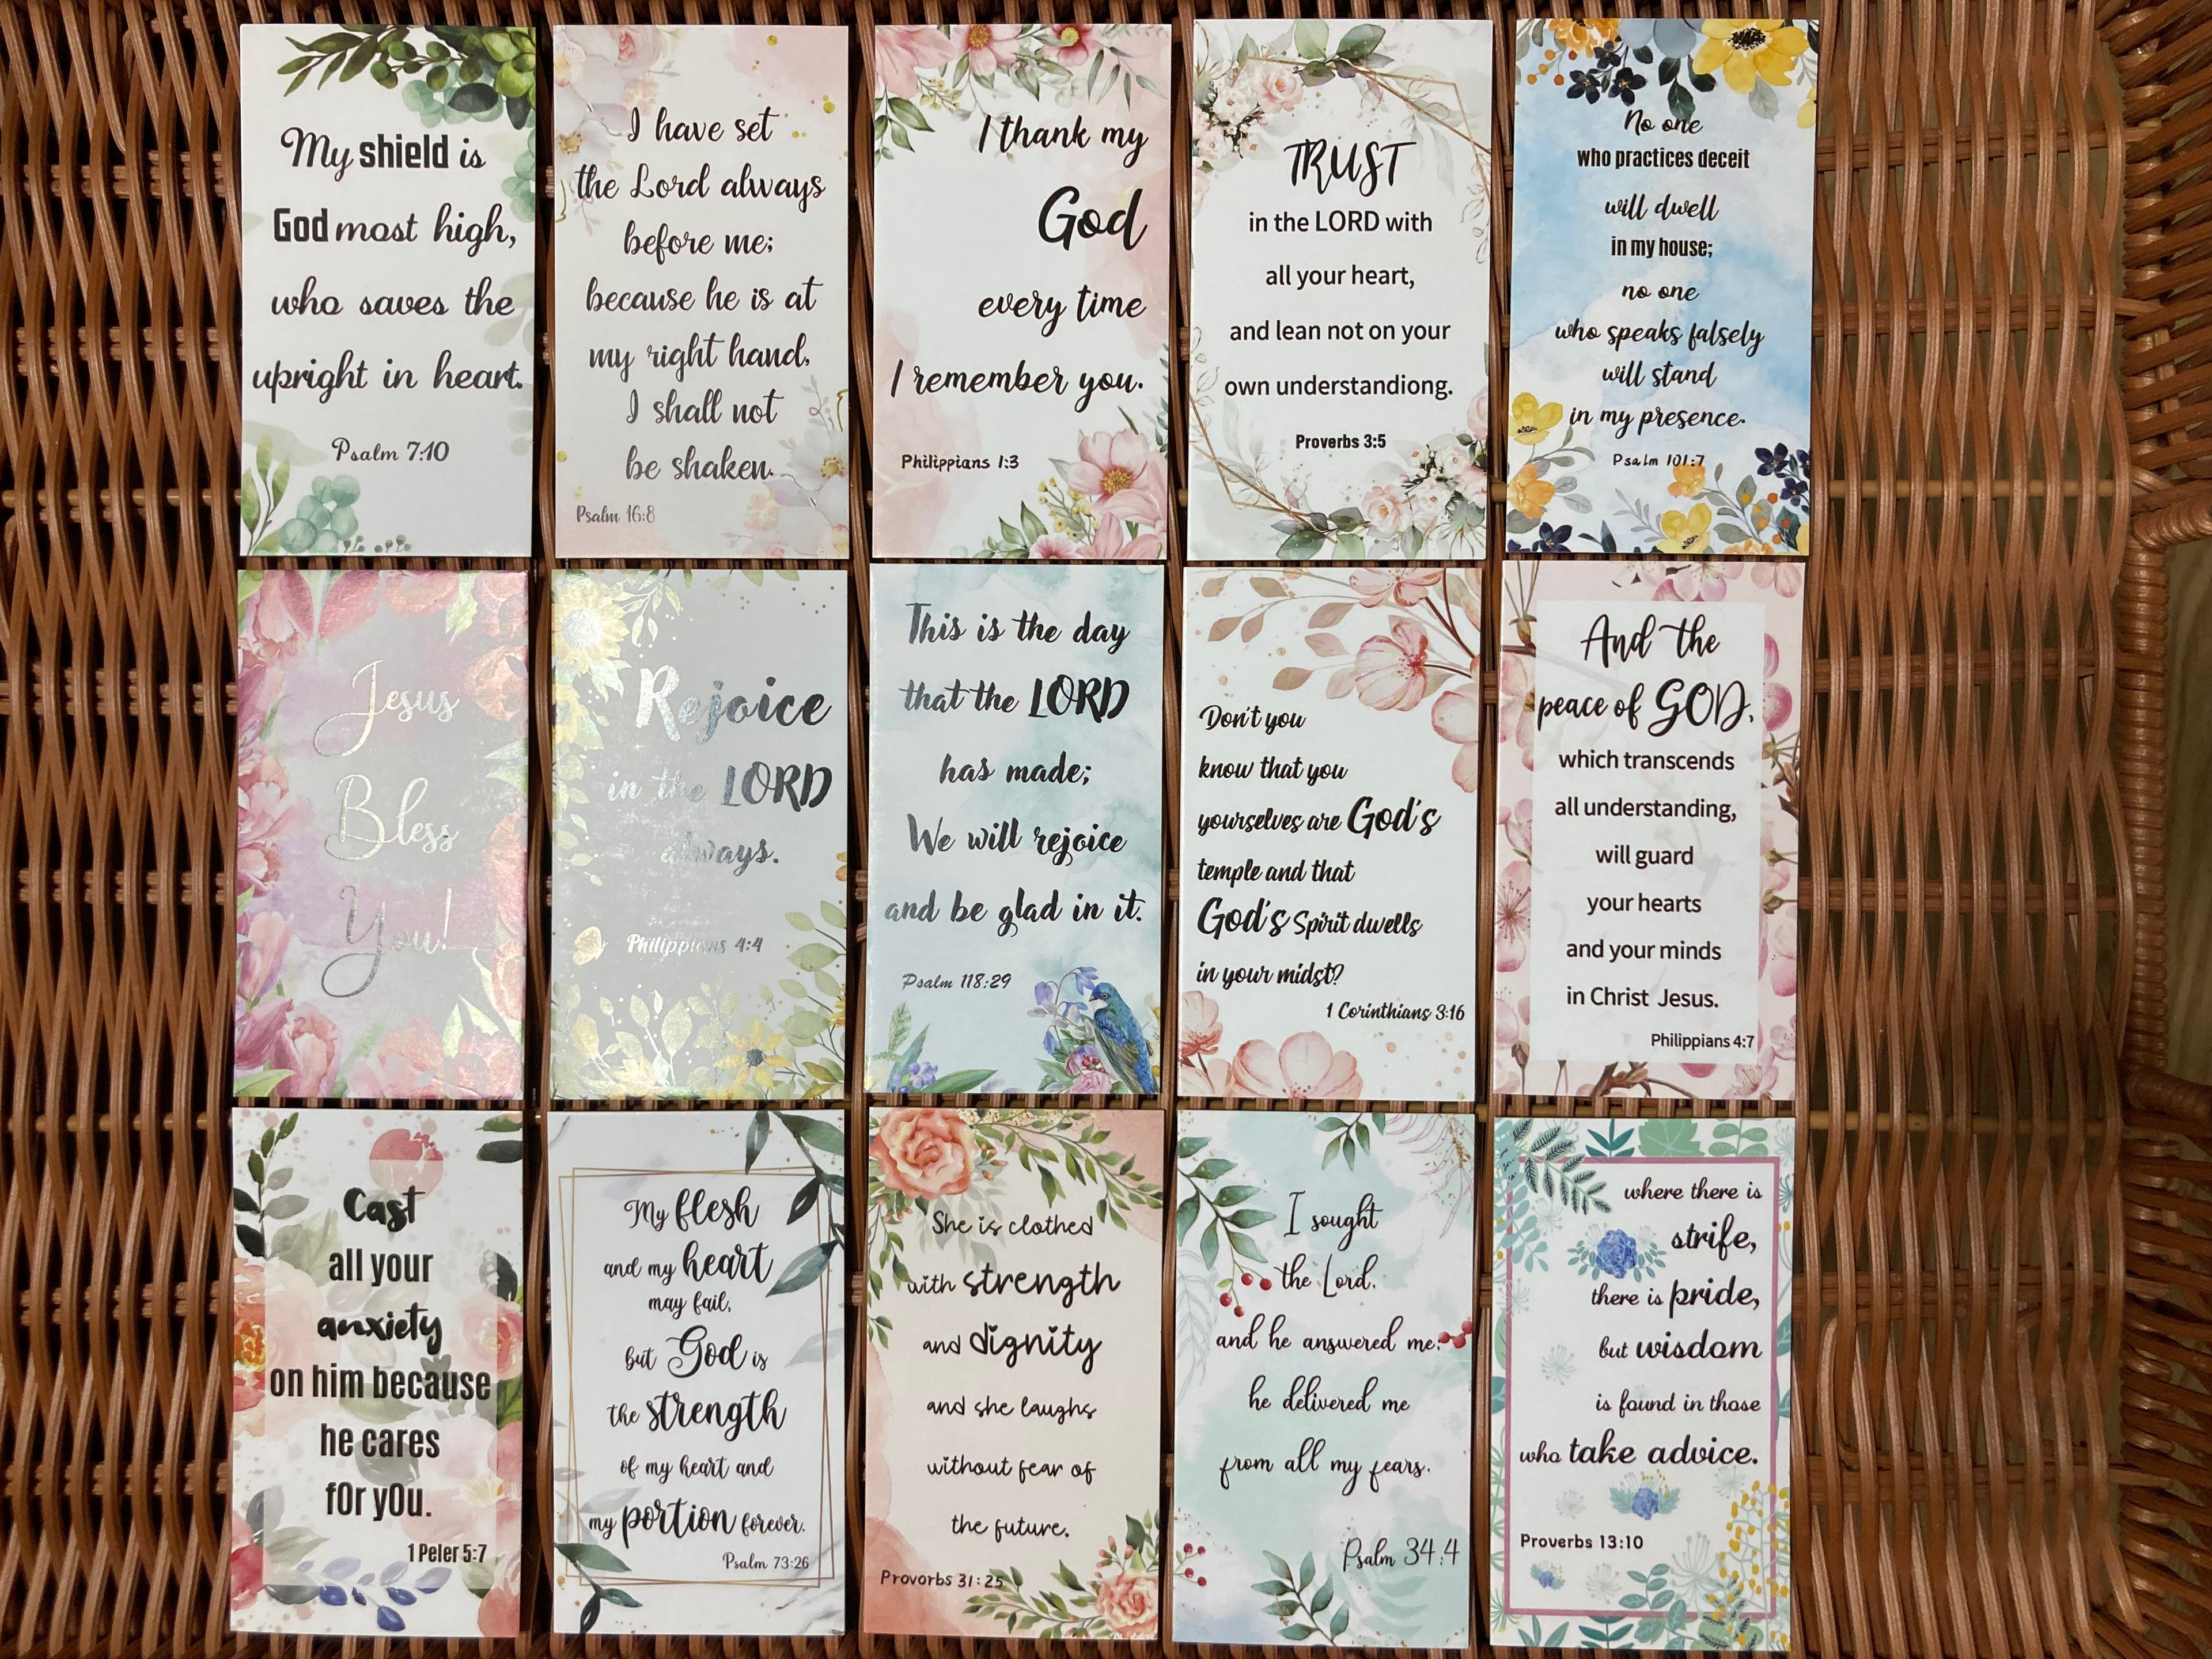 My shield is
God most high,
who saves the
upright in heart.
Psalm 7:10
I have set
the Lord always
before me;
because he is at
my right hand,
I shall not
be shaken.
Psalm 16:8
I thank my
God
every time
I remember you.
Philippians 1:3
TRUST
in the LORD with
all your heart,
and lean not on your
own understandiong.
Proverbs 3:5
No one
who practices deceit
will dwell
in my house;
no one
who speaks falsely
will stand
in my presence.
Psalm 101:7
Jesus
Bless
You!
Rejoice
in the LORD
always.
Philippians 4:4
This is the day
that the LORD
has made;
We will rejoice
and be glad in it.
Psalm 118:29
Don't you
know that you
yourselves are God's
temple and that
God's Spirit dwells
in your midst?
1 Corinthians 3:16
And the
peace of GOD,
which transcends
all understanding,
will guard
your hearts
and your minds
in Christ Jesus.
Philippians 4:7
Cast
all your
anxiety
on him because
he cares
fOr yOu.
1 Peler 5:7
My flesh
and my heart
may fail,
but God is
the strength
of my heart and
my portion forever.
Psalm 73:26
She is clothed
with strength
and dignity
and she laughs
without fear of
the future.
Provorbs 31:25
I sought
the Lord,
and he answered me;
he delivered me
from all my fears.
Psalm 34:4
where there is
strife,
there is pride,
but wisdom
is found in those
who take advice.
Proverbs 13:10